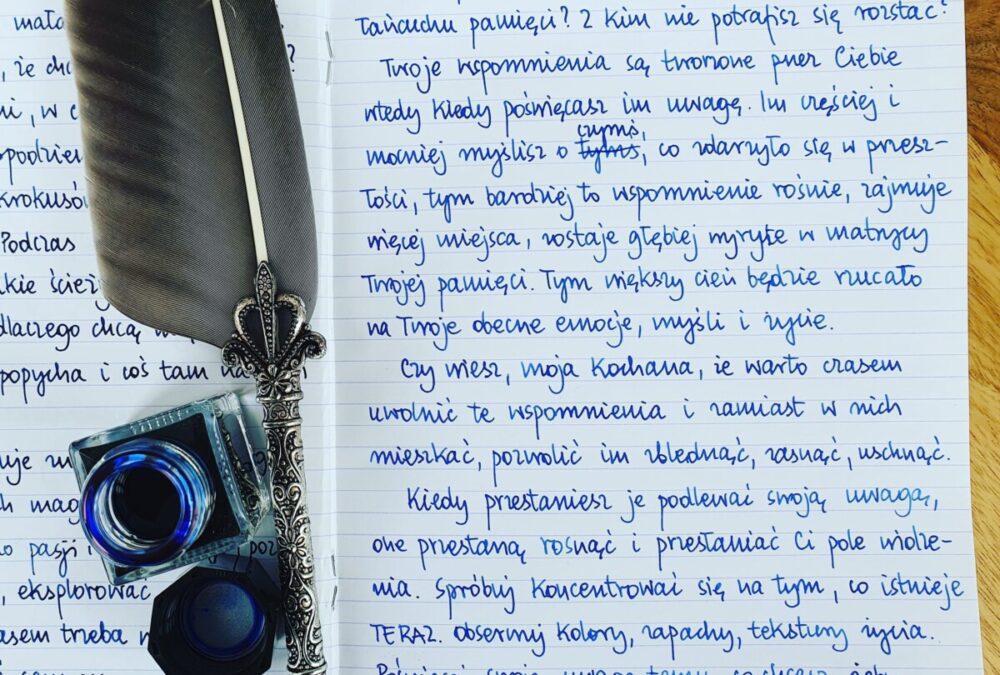 mało
, że chc ?
ni, w c
podzien
krokusów
Podczas
kie ścież
dlaczego chcą w
popycha i coś tam na
uje
h mag
o pasji i poz
, eksplorować
asem trzeba n
łańcuchu pamięci? Z kim nie potrafisz się rozstać?
Twoje wspomnienia są tworzone przez Ciebie
wtedy kiedy poświęcasz im uwagę. Im częściej i
czymś,
mocniej myślisz o tyms, co zdarzyło się w przesz-
łości, tym bardziej to wspomnienie rośnie, zajmuje
więcej miejsca, zostaje głębiej wyryte w matrycy
Twojej pamięci. Tym większy cień będzie rzucało
na Twoje obecne emocje, myśli i życie.
Czy wiesz, moja Kochana, że warto czasem
uwolnić te wspomnienia i zamiast w nich
mieszkać, pozwolić im zblednąć, zasnąć, uschnąć.
Kiedy przestaniesz je podlewać swoją uwagą,
one przestaną rosnąć i przesłaniać Ci pole widze-
nia. Spróbuj koncentrować się na tym, co istnieje
TERAZ. Obserwuj kolory, zapachy, tekstury życia.